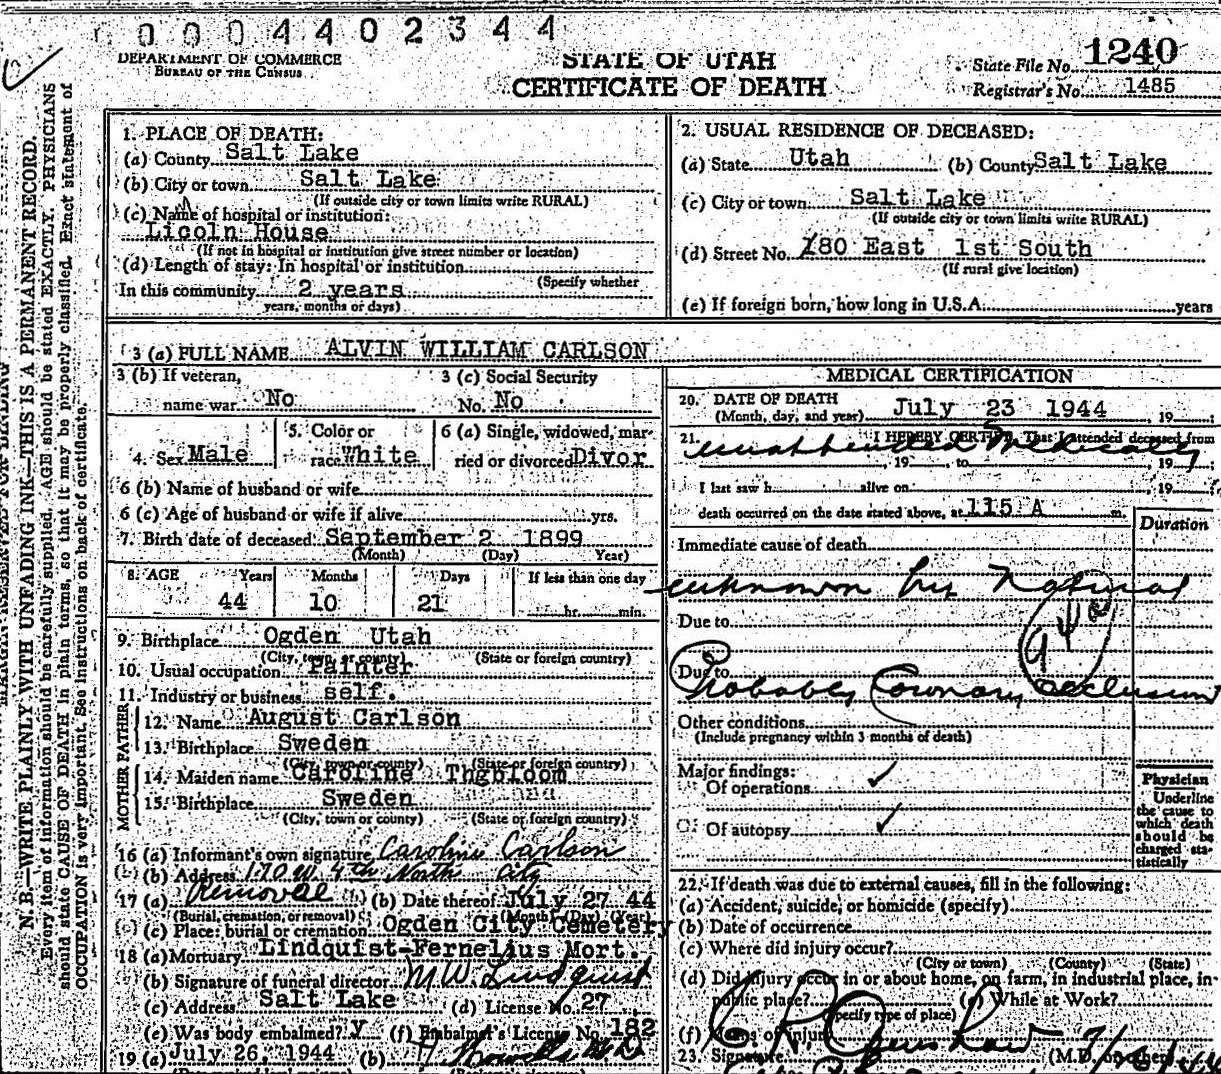 0004402344
DEPARTMENT OF COMMERCE
BUREAU OF THE CENSUS
STATE OF UTAH
CERTIFICATE OF DEATH
State File No. 1240
Registrar's No. 1485
N. B.—WRITE PLAINLY WITH UNFADING INK—THIS IS A PERMANENT RECORD.
Every item of information should be carefully supplied. AGE should be stated EXACTLY. PHYSICIANS
should state CAUSE OF DEATH in plain terms, so that it may be properly classified. Exact statement of
OCCUPATION is very important. See instructions on back of certificate.
1. PLACE OF DEATH:
(a) County Salt Lake
(b) City or town Salt Lake
(If outside city or town limits write RURAL)
(c) Name of hospital or institution:
Licoln House
(If not in hospital or institution give street number or location)
(d) Length of stay: In hospital or institution
(Specify whether
In this community 2 years
years, months or days)
2. USUAL RESIDENCE OF DECEASED:
(a) State Utah (b) County Salt Lake
(c) City or town Salt Lake
(If outside city or town limits write RURAL)
(d) Street No. 180 East 1st South
(If rural give location)
(e) If foreign born, how long in U.S.A. years
3 (a) FULL NAME ALVIN WILLIAM CARLSON
3 (b) If veteran,
name war No
3 (c) Social Security
No. No
4. Sex Male
5. Color or
race White
6 (a) Single, widowed, mar-
ried or divorced Divor
6 (b) Name of husband or wife
6 (c) Age of husband or wife if alive yrs.
7. Birth date of deceased: September 2 1899
(Month) (Day) Year)
8. AGE Years Months Days If less than one day
44 10 21 hr. min.
9. Birthplace Ogden Utah
(City, town, or county) (State or foreign country)
10. Usual occupation Painter
11. Industry or business self.
FATHER
12. Name August Carlson
13. Birthplace Sweden
(City, town or county) (State or foreign country)
MOTHER
14. Maiden name Caroline Thgbloom
15. Birthplace Sweden
(City, town or county) (State or foreign country)
16 (a) Informant's own signature Caroline Carlson
(b) Address 170 W. 4th North City
17 (a) Removal (b) Date thereof July 27 44
(Burial, cremation, or removal) (Month) (Day) (Year)
(c) Place: burial or cremation Ogden City Cemetery
18 (a) Mortuary Lindquist-Fernelius Mort.
(b) Signature of funeral director M.W. Lindquist
(c) Address Salt Lake (d) License No. 27
(e) Was body embalmed? y (f) Embalmer's License No. 182
19 (a) July 26, 1944 (b)
MEDICAL CERTIFICATION
20. DATE OF DEATH
(Month, day, and year) July 23 1944 19 ;
21. I HEREBY CERTIFY, That I attended deceased from
unattended Medically
, 19 , to , 19 ;
I last saw h alive on , 19 ,
death occurred on the date stated above, at 115 A m.
Duration
Immediate cause of death
unknown by Natural
Due to
94a
Due to
Probably Coronary occlusion
Other conditions
(Include pregnancy within 3 months of death)
Major findings:
Of operations ✓
Of autopsy ✓
Physician
Underline
the cause to
which death
should be
charged sta-
tistically
22. If death was due to external causes, fill in the following:
(a) Accident, suicide, or homicide (specify)
(b) Date of occurrence
(c) Where did injury occur?
(City or town) (County) (State)
(d) Did injury occur in or about home, on farm, in industrial place, in
public place? (e) While at Work?
(Specify type of place)
(f) Means of injury
23. Signature (M.D. or other)